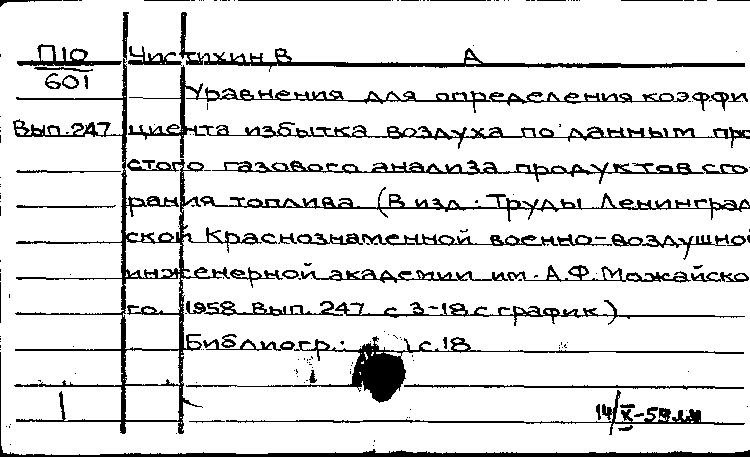 П10 Чистихин, В А
601
Уравнения для определения коэффи
Вып. 247 циента избытка воздуха по данным про
стого газового анализа продуктов сго
рания топлива. (В изд.: Труды Ленинград
ской Краснознаменной военно-воздушной
инженерной академии им. А.Ф. Можайско
го. 1958. Вып. 247. с 3-18 с график.).
Библиогр.: с. 18
14/X-59